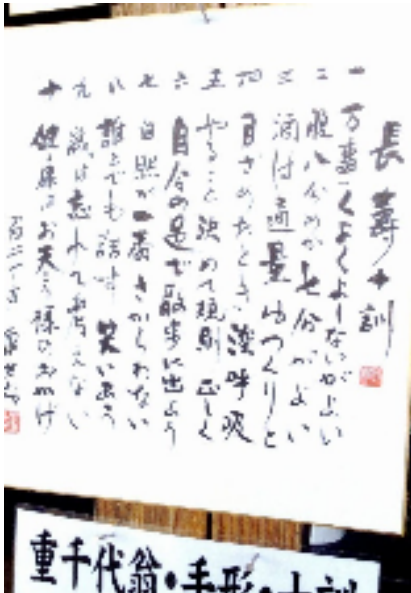 長壽十訓
一 万事くよくよしないがよい
二 腹八分めか七分がよい
三 酒は適量ゆっくりと
四 目ざめたとき深呼吸
五 やること決めて規則正しく
六 自分の足で散歩に出よう
七 自然が一番さからわない
八 誰とでも話す 笑いあう
九 歳は忘れて考えない
十 健康はお天と様のおかげ
重千代翁・手形・十訓